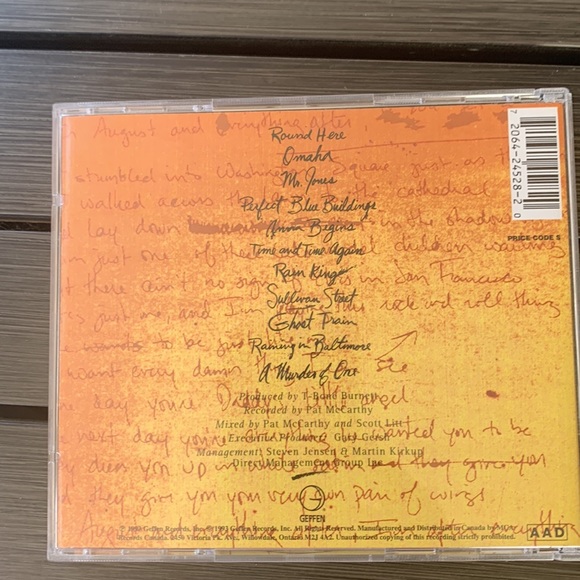 August and everything after,
Round Here
Omaha
Mr. Jones
Perfect Blue Buildings
Anna Begins
Time and Time Again
Rain King
Sullivan Street
Ghost Train
Raining in Baltimore
A Murder of One
stumbled into Washington Square just as the
walked across the cathedral
lay down in the shadow
one of these children
there ain't no sign of in San Francisco
just me, and I'm this rock and roll thing
to be just
want every damn see
say you're Daddy angel
next day you're wanted you to be
dress you up in they give you
they give you your very own pair of wings
August
Produced by T-Bone Burnett
Recorded by Pat McCarthy
Mixed by Pat McCarthy and Scott Litt
Executive Producer Gary Gersh
Management: Steven Jensen & Martin Kirkup
Direct Management Group Inc.
GEFFEN
© 1993 Geffen Records, Inc. ℗ 1993 Geffen Records, Inc. All Rights Reserved. Manufactured and Distributed in Canada by MCA
Records Canada, 2450 Victoria Pk. Ave., Willowdale, Ontario M2J 4A2. Unauthorized copying of this recording strictly prohibited.
7 20642-4528-2 0
PRICE CODE S
AAD